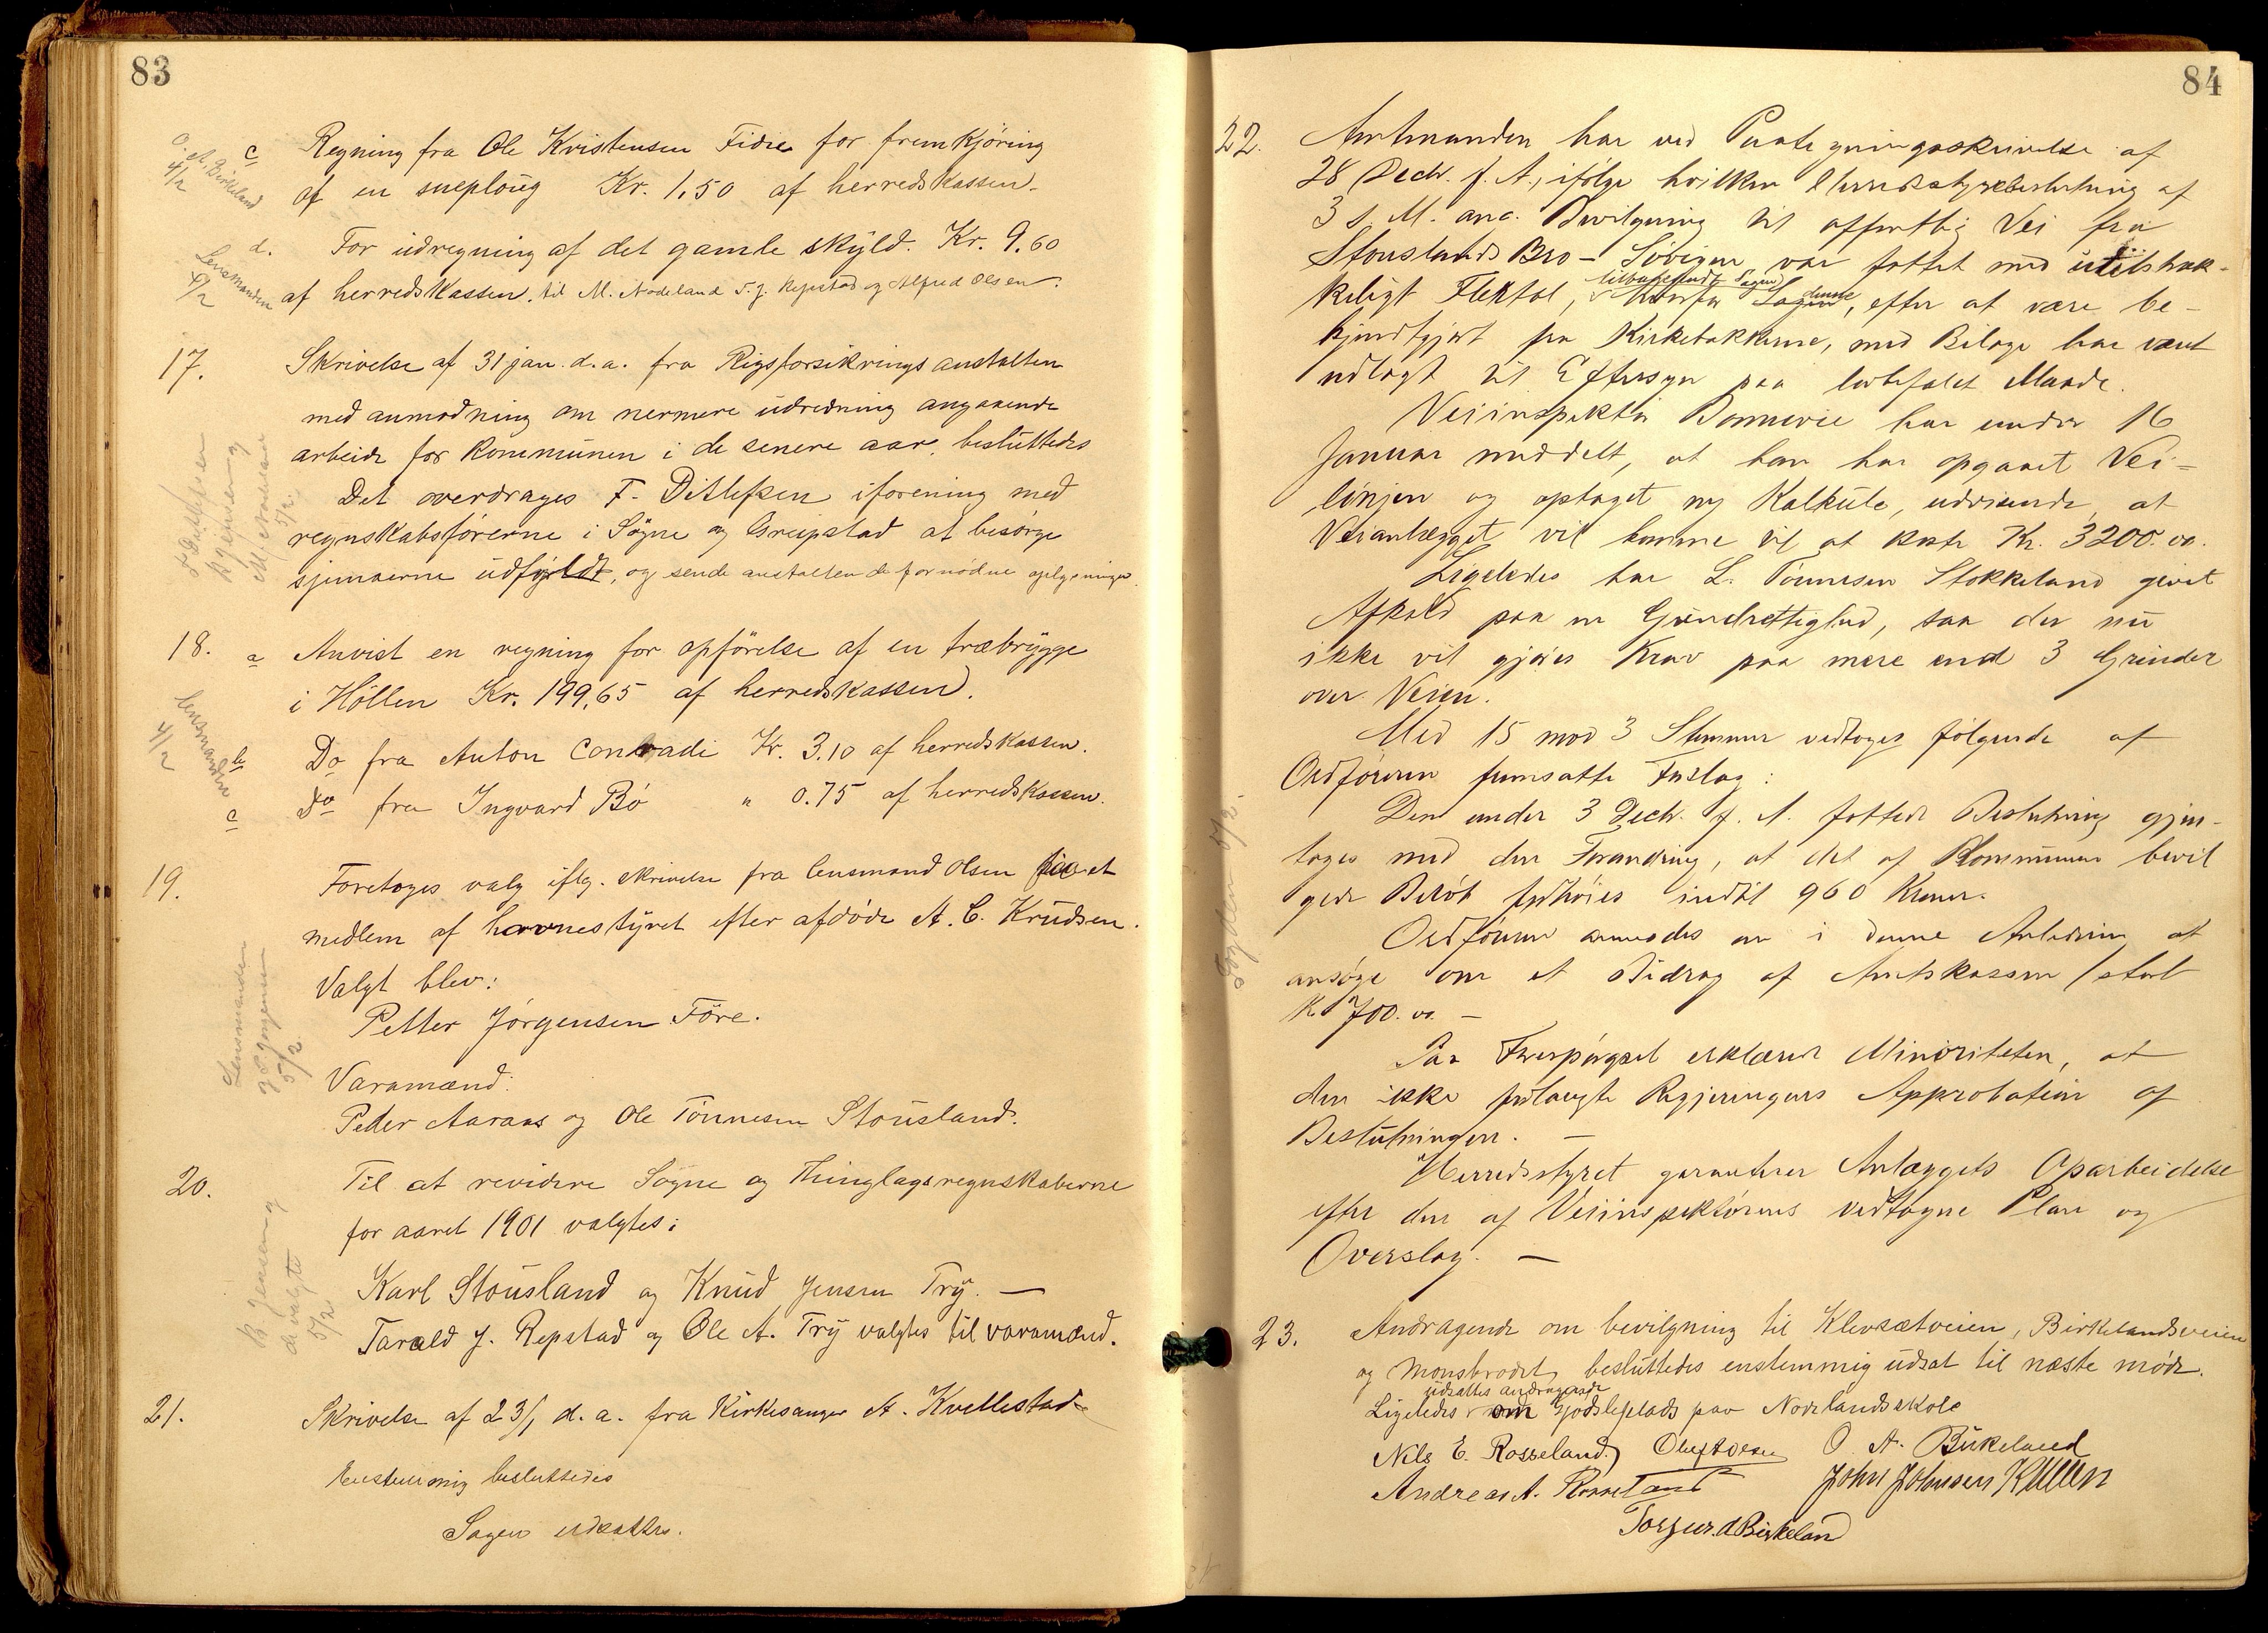 83
O. A. Birkeland
4/2
c Regning fra Ole Kristensen Fidie for fremkjöring
af en sneploug Kr. 1,50 af herredskassen.
Lensmanden
4/2
d. For udregning af det gamle skyld. Kr. 9.60
af herredskassen. til M. Nodeland T. J. Repstad og Alfred Olsen.
17. Skrivelse af 31 jan. d.a. fra Rigsforsikringsanstalten
med anmodning om nermere udredning angaaende
arbeide for kommunen i de senere aar, besluttedes
Det overdrages F. Ditlefsen iforening med
regnskabsförerne i Sögne og Greipstad at besörge
sjemaerne udfyldt, og sende anstalten de fornödne oplysninger.
F Ditlefsen
5/2
18. a Anvist en regning for opförelse af en træbrygge
i Höllen Kr. 199,65 af herredskassen.
Lensmanden
4/2
b Do fra Anton Conradi Kr. 3.10 af herredskassen.
c Do fra Ingvard Bö " 0.75 af herredskassen.
19. Foretoges valg iflg. skrivelse fra lensmand Olsen paa et
medlem af havnestyret efter afdöde A. C. Knudsen.
Valgt blev:
Petter Jörgensen Töre.
Varamænd:
Peder Aaraas og Ole Tönnesen Stousland.
Lensmanden
P Jörgensen
5/2
20. Til at revidere Sogne og Thinglagsregnskaberne
for aaret 1901 valgtes:
Karl Stousland og Knud Jensen Try. —
Tarald J. Repstad og Ole A. Try valgtes til varamænd.
K Jensen og
de valgte
5/2
21. Skrivelse af 23/1 d. a. fra Kirkesanger A. Kvellestad
Enstemmig besluttedes
Sagen udsættes.
84
22. Amtmanden har ved Paategningsskrivelse af
28 Decbr. f. A., ifölge hvilken Herredsstyrebeslutning af
3 s. M. ang. Bevilgning til offentlig Vei fra
Stouslands Bro - Sövigen var fattet med utilstræk-
keligt Flertal, tilbagesendt Sagen
hvorfor denne, efter at være be-
kjendtgjort fra Kirkebakkerne, med Bilage har vært
udlagt til Eftersyn paa lovbefalet Maade.
Veiinspektör Bonnevie har under 16
Januar meddelt, at han har opgaaet Vei-
linjen og optaget ny Kalkule, udvisende, at
Veianlægget vil komme til at koste Kr. 3200.oo.
Ligeledes har L. Tönnesen Stokkeland givet
Afkald paa en Grindrettighed, saa der nu
ikke vil gjöres Krav paa mere end 3 Grinder
over Veien.
Med 15 mod 3 Stemmer vedtoges fölgende af
Ordföreren fremsatte Forslag:
Den under 3 Decbr. f. A. fattede Beslutning gjen-
toges med den Forandring, at det af Kommunen bevil
gede Belöb forhöies indtil 960 Kroner.
Ordföreren anmodes om i denne Anledning at
ansöge om et Bidrag af Amtskassen stort
Kr 700.oo. —
Fogden 5/2
Paa Forespörgsel erklærede Minoriteten, at
den ikke forlangte Regjeringens Approbation af
Beslutningen. —
Herredsstyret garanterer Anlæggets Oparbeidelse
efter den af Veiinspektörens vedtagne Plan og
Overslag. —
23. Andragende om bevilgning til Klevsætveien, Birkelandsveien
og Monsbrodet, besluttedes enstemmig udsat til næste möde.
udsattes andragende
Ligeledes om Godslefplads paa Nodelandsskole
Nils E. Rosseland. Oluf Aolsen O. A. Birkeland
Andreas A. Rosseland John Johnsen Kullen
Torjus. A Birkeland